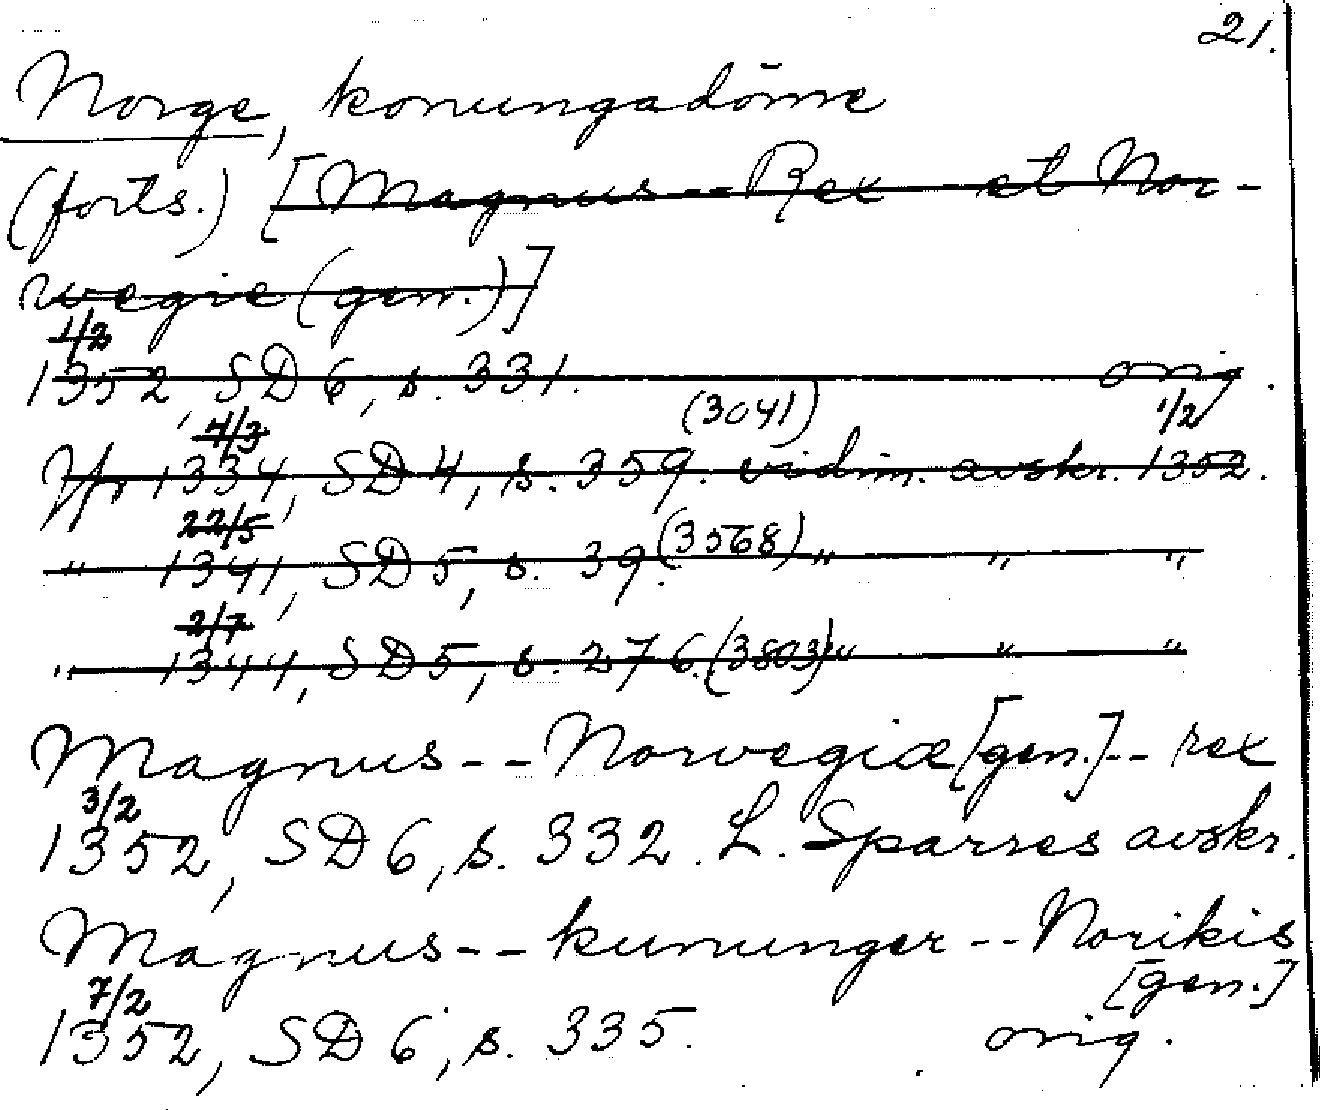 21.
Norge, konungadöme
(forts.) [Magnus -- Rex et Nor-
wegie (gen.)]
1/2
1352, SD 6, s. 331. orig.
(3041) 1/2
4/3
Jfr 1334, SD 4, s. 359. vidim. avskr. 1352.
22/5
" 1341, SD 5, s. 39. (3568) " " "
2/7
" 1344, SD 5, s. 276. (3803) " " "
Magnus -- Norvegiæ [gen.] -- rex
3/2
1352, SD 6, s. 332. L. Sparres avskr.
Magnus -- kununger -- Norikis
[gen.]
7/2
1352, SD 6, s. 335. orig.